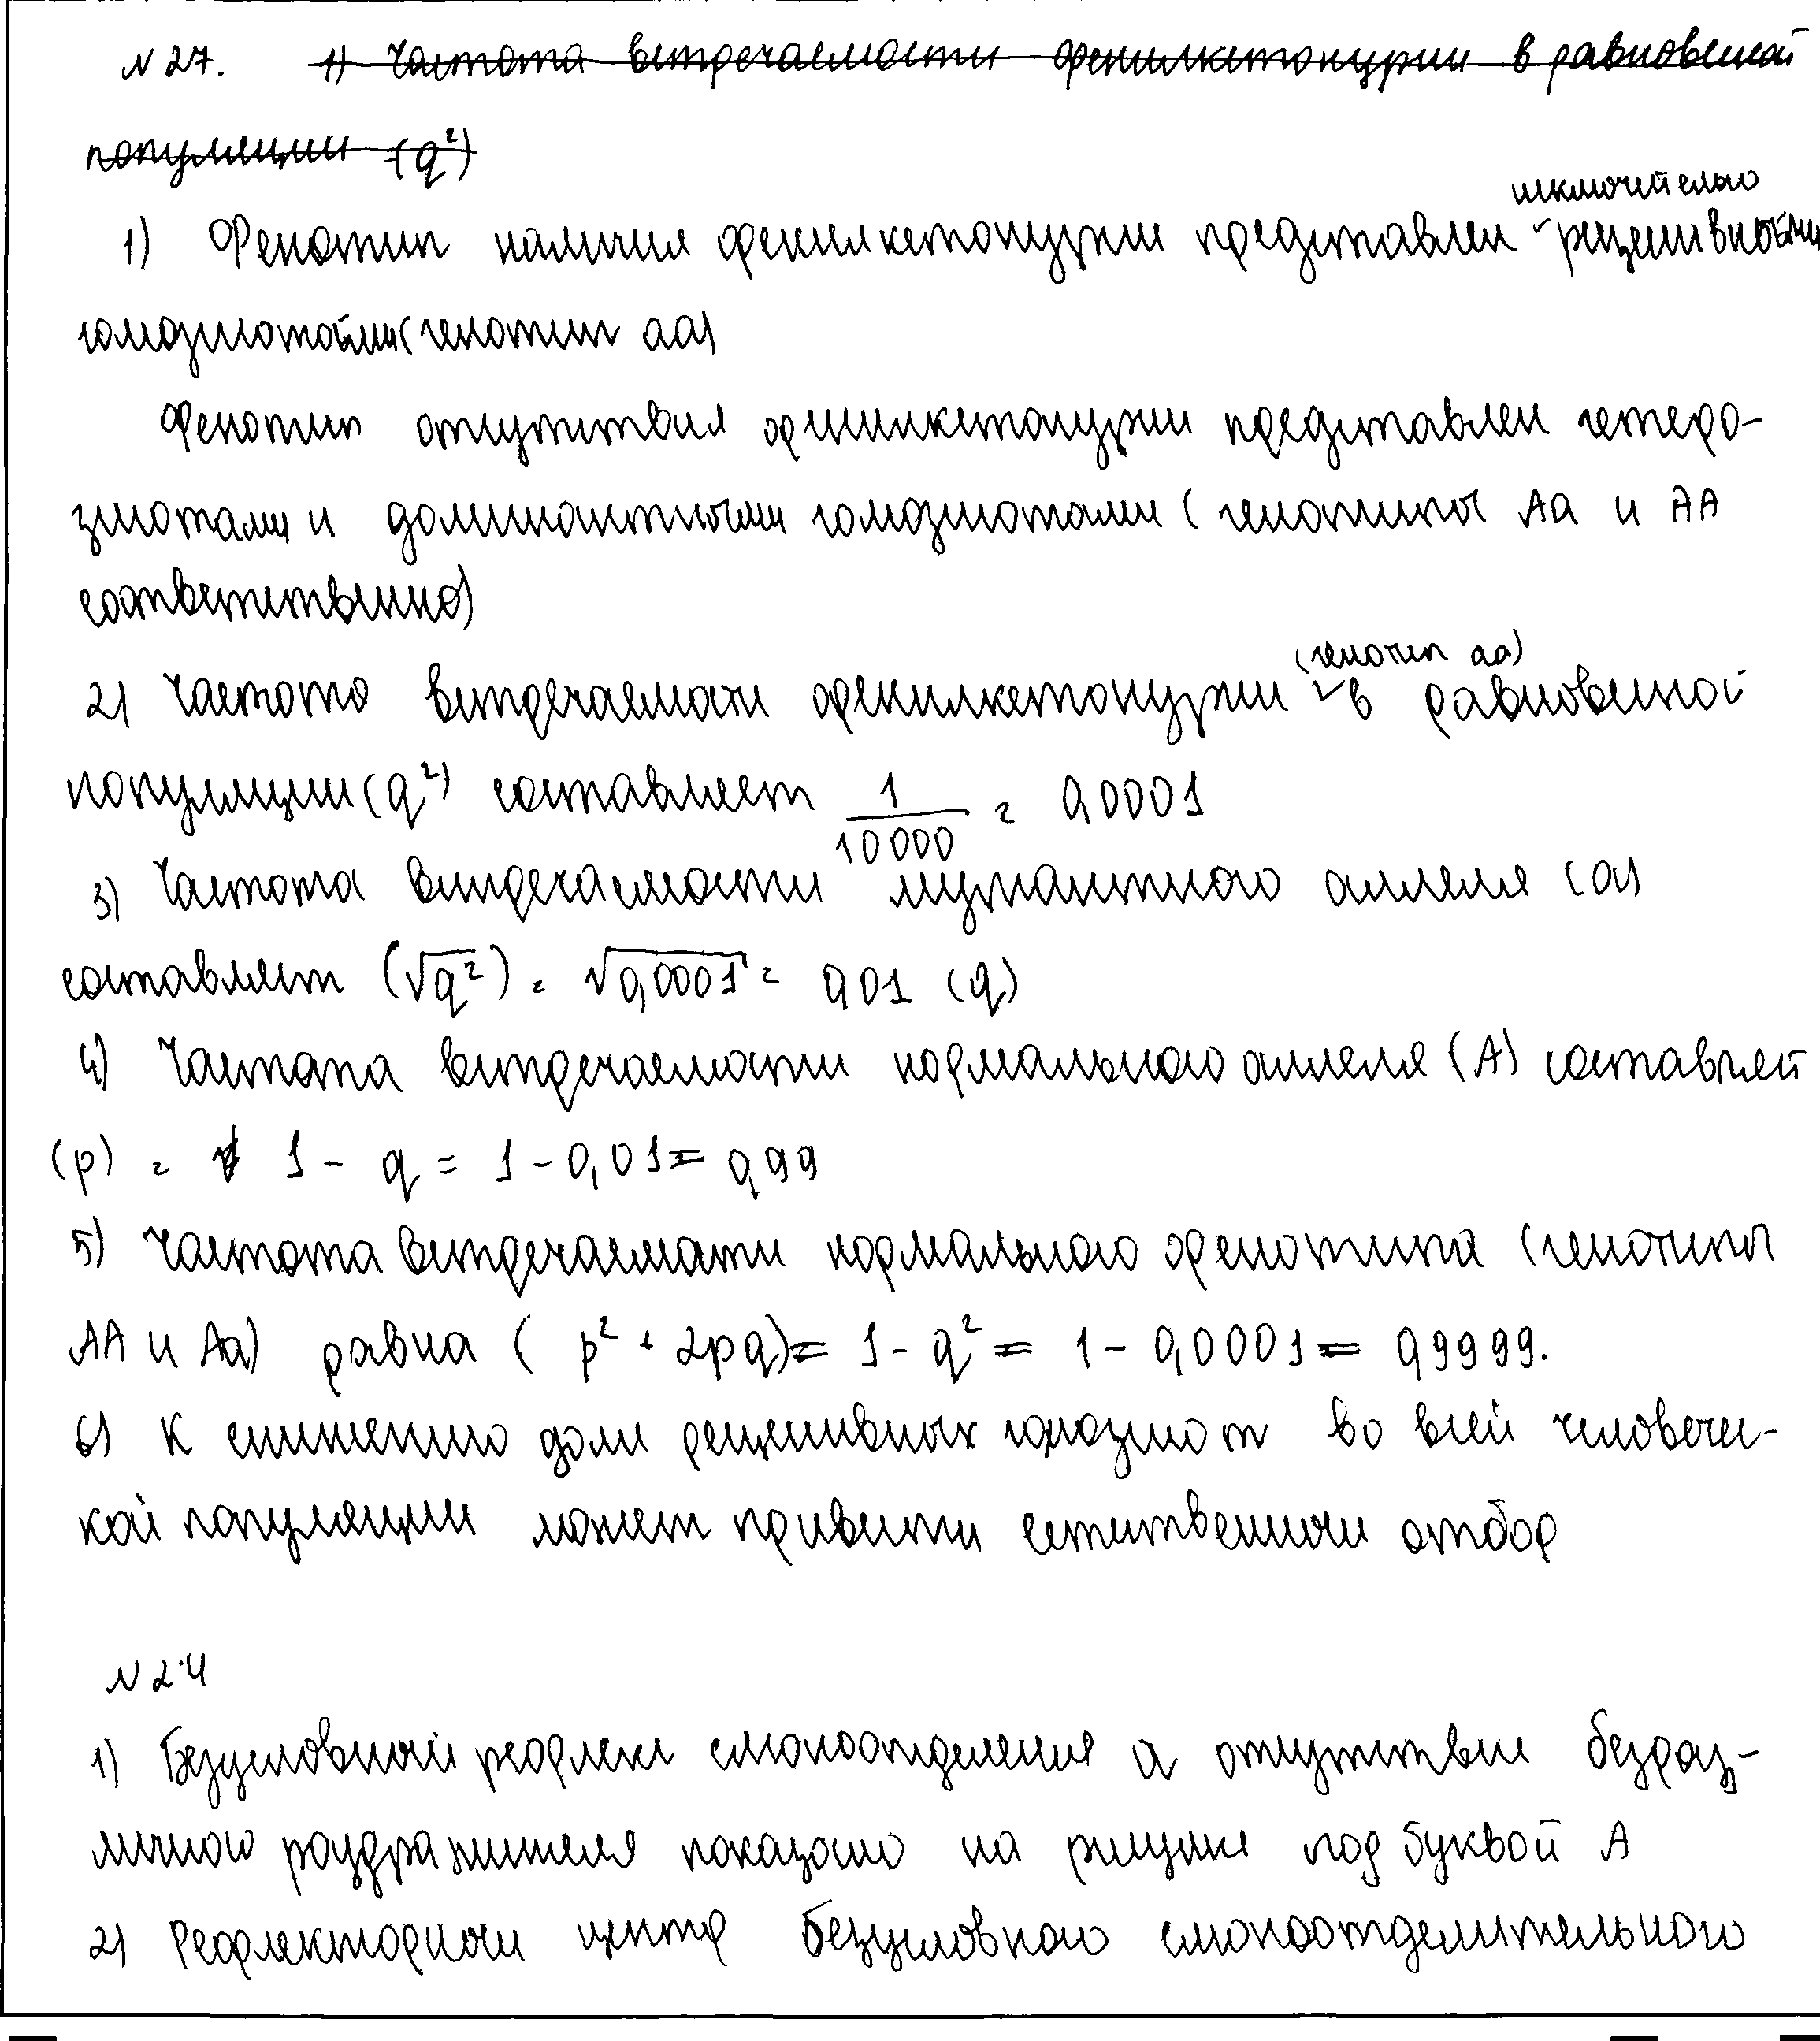 № 27. 1) Частота встречаемости фенилкетонурии в равновесной
популяции (q²)
исключительно
1) Фенотип наличия фенилкетонурии представлен рецессивными
гомозиготами (генотип aa)
Фенотип отсутствия фенилкетонурии представлен гетеро-
зиготами и доминантными гомозиготами (генотипы Aa и AA
соответственно)
(генотип aa)
2) Частота встречаемости фенилкетонурии в равновесной
популяции (q²) составляет 1/10000 = 0,0001
3) Частота встречаемости мутантного аллеля (a)
составляет (√q²) = √0,0001 = 0,01 (q)
4) Частота встречаемости нормального аллеля (A) составляет
(p) = 1 - q = 1 - 0,01 = 0,99
5) Частота встречаемости нормального фенотипа (генотипы
AA и Aa) равна (p² + 2pq) = 1 - q² = 1 - 0,0001 = 0,9999.
6) К снижению доли рецессивных гомозигот во всей человечес-
кой популяции может привести естественный отбор
№ 24
1) Безусловный рефлекс слюноотделения в отсутствие безраз-
личного раздражителя показано на рисунке под буквой А
2) Рефлекторный центр безусловного слюноотделительного